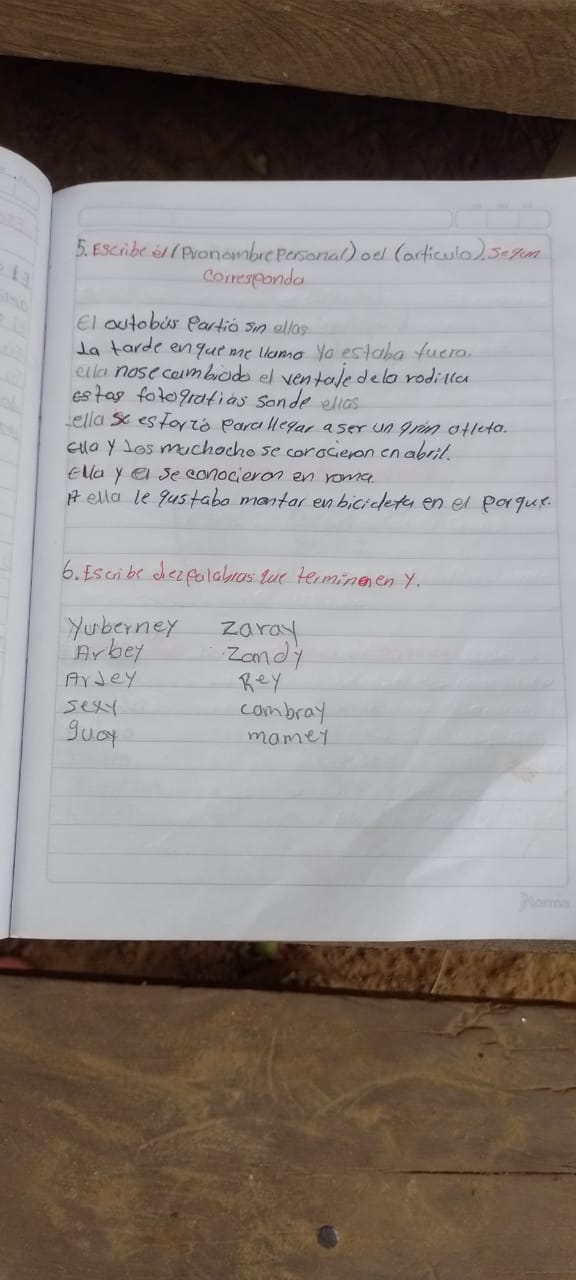 5. Escribe él (Pronombre Personal) o el (articulo). Segun
Corresponda
El autobús Partió sin ellas
La tarde en que me llamo Ya estaba fuera.
ella no se cambiado el ventaje de la rodilla
estas fotografías son de ellas
ella se esforzó para llegar a ser un gran atleta.
ella y los muchacho se conocieron en abril.
Ella y el se conocieron en roma.
A ella le gustaba montar en bicicleta en el parque.
6. Escribe diez palabras que terminen en Y.
Yurberney Zaray
Arbey Zandy
Arley Rey
sexy cambray
guay mamey
Norma